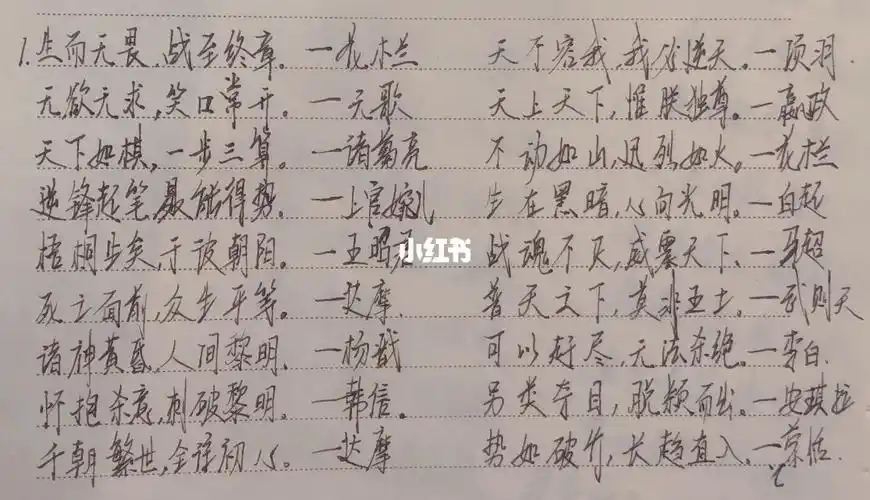 1.生而无畏,战至终章。一花木兰 天不容我,我必逆天。一项羽
无欲无求,笑口常开。一元歌 天上天下,惟朕独尊。一嬴政
天下如棋,一步三算。一诸葛亮 不动如山,迅烈如火。一花栏
逆锋起笔,最能得势。一上官婉儿 生在黑暗,心向光明。一白起
梧桐生矣,于彼朝阳。一王昭君 战魂不灭,威震天下、一马超
死亡面前,众生平等。一达摩. 普天之下,莫非王土。一武则天
诸神黄昏,人间黎明、一杨戬 可以赶尽,无法杀绝。一李白.
怀抱杀意,刺破黎明。一韩信。 另类夺目,脱颖而出。一安琪拉
千朝繁世,全详初心。一达摩 势如破竹,长趋直入、一
小红书